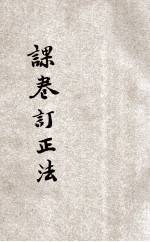 課卷訂正法